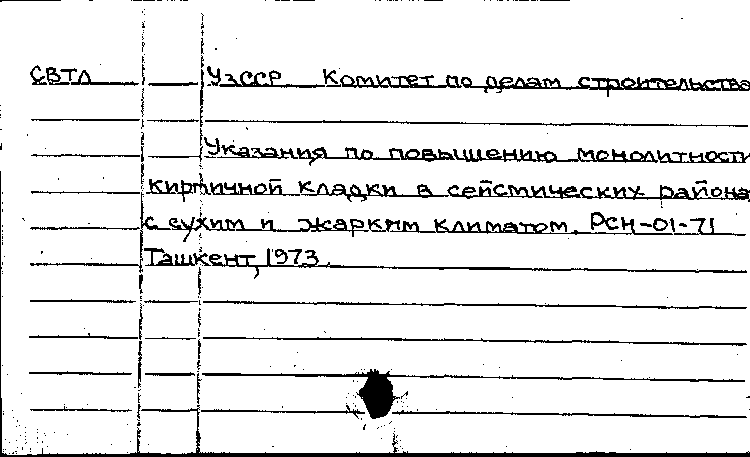 СВТЛ УзССР Комитет по делам строительства
Указания по повышению монолитности
кирпичной кладки в сейсмических района
с сухим и жарким климатом. РСН-01-71
Ташкент, 1973.